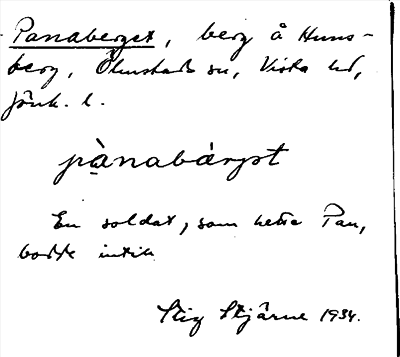 Panaberget, berg å Huns-
berg, Ölmstads sn, Vista hd,
Jönk. l.
pànabàrɡət
En soldat, som hette Pan,
bodde intill
Stig Stjärne 1934.